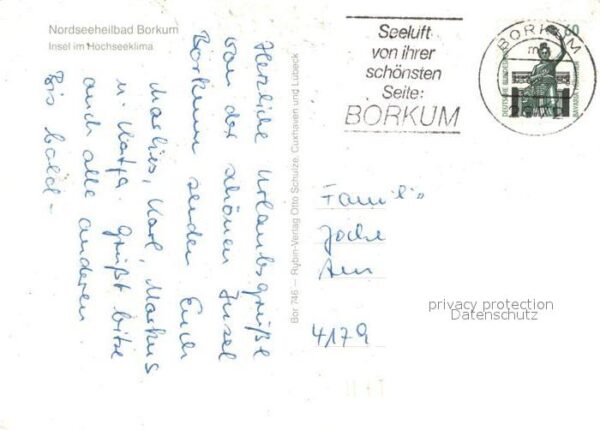 Nordseeheilbad Borkum
Insel im Hochseeklima
Herzliche Urlaubsgrüße
von der schönen Insel
Borkum senden Euch
Marlies, Karl, Markus
u. Katja. Grüßt bitte
auch alle anderen
Bis bald -
Bor 746 — Rubin-Verlag Otto Schulze, Cuxhaven und Lübeck
Seeluft
von ihrer
schönsten
Seite:
BORKUM
BORKUM
60
DEUTSCHE BUNDESPOST
BAVARIA MÜNCHEN
Familie
Joche
Am
4179
privacy protection
Datenschutz